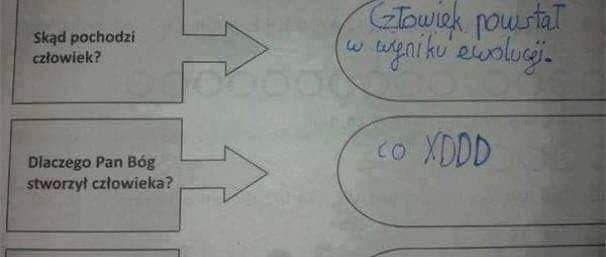 Skąd pochodzi
człowiek?
Człowiek powstał
w wyniku ewolucji.
Dlaczego Pan Bóg
stworzył człowieka?
co XDDD